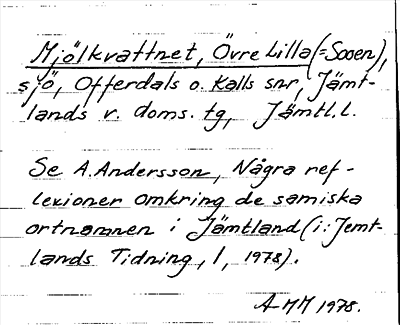 Mjölkvattnet, Övre Lilla (= Sooen),
sjö, Offerdals o. Kalls snr, Jämt-
lands v. doms. tg, Jämtl. l.
Se A. Andersson, Några ref-
lexioner omkring de samiska
ortnamnen i Jämtland (i: Jemt-
lands Tidning, 1, 1978).
AMM 1978.